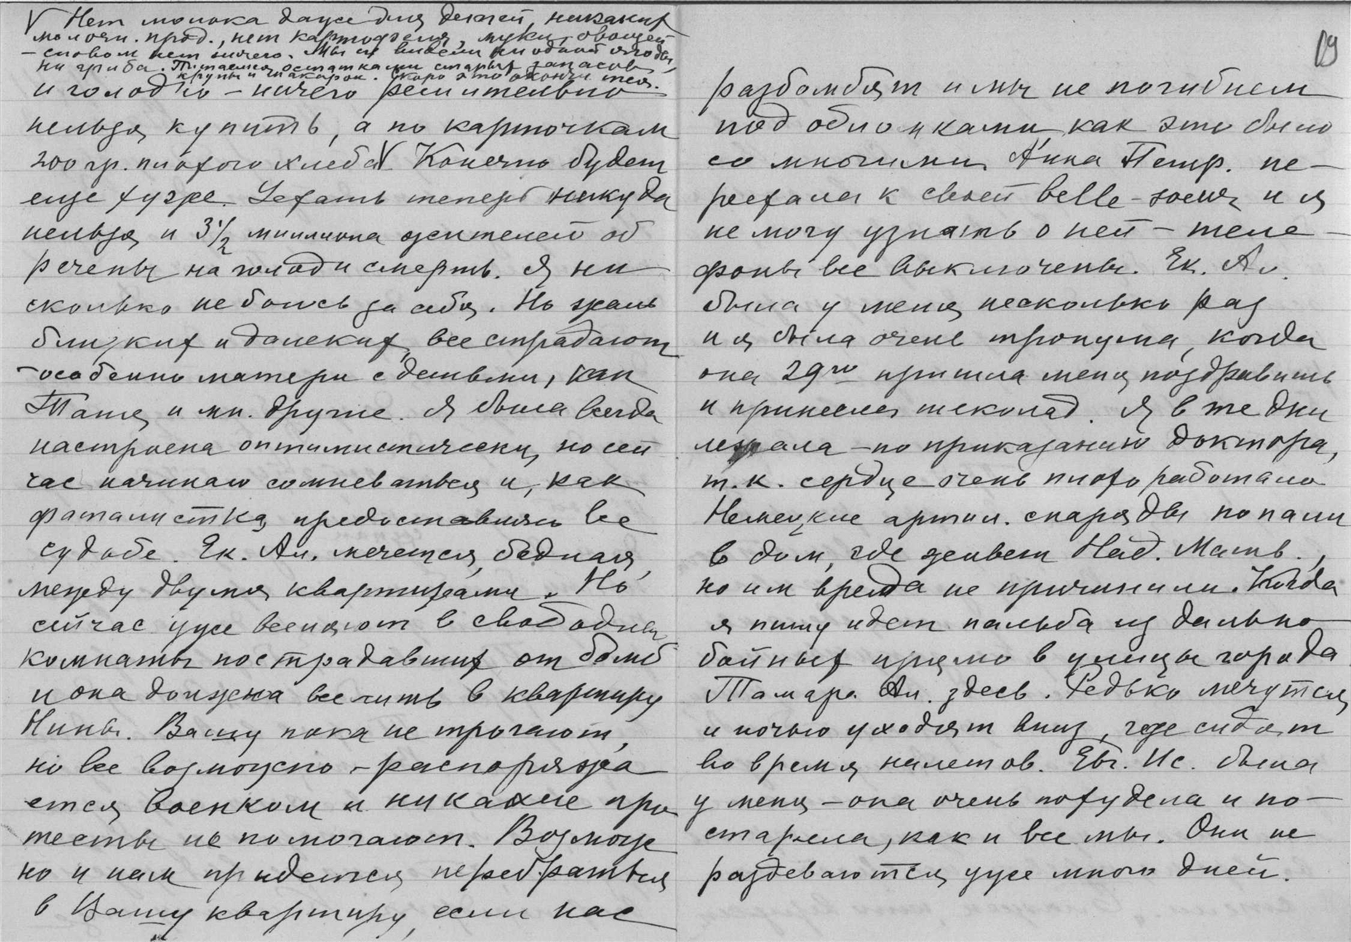 V Нет молока даже для детей, никаких
молочн. прод., нет картофеля, муки, овощей
— словом нет ничего. Мы не видели ни одной ягоды,
ни гриба. Питаемся остатками старых запасов
крупы и макарон. Скоро это окончится.
и голодно — ничего решительно
нельзя купить, а по карточкам
200 гр. плохого хлеба V Конечно будет
еще хуже. Уехать теперь никуда
нельзя и 3 1/2 миллиона жителей об
речены на голод и смерть. Я ни
сколько не боюсь за себя. Но жаль
близких и далеких, все страдают
— особенно матери с детьми, как
Таня и мн. другие. Я была всегда
настроена оптимистически, но сей
час начинаю сомневаться и, как
фаталистка, предоставляю все
судьбе. Ек. Ал. мечется, бедная,
между двумя квартирами. Но
сейчас уже вселяют в свободные
комнаты пострадавших от бомб
и она должна вселить в квартиру
Нины. Вашу пока не трогают,
но все возможно — распоряжа
ется военком и никакие про
тесты не помогают. Возмож
но и нам придется перебраться
в Вашу квартиру, если нас
19
разбомбят и мы не погибнем
под обломками, как это было
со многими. Анна Петр. пе—
реехала к своей belle-soeur и я
не могу узнать о ней — теле—
фоны все выключены. Ек. Ал.
была у меня несколько раз
и я была очень тронута, когда
она 29го пришла меня поздравить
и принесла шоколад. Я в те дни
лежала — по приказанию доктора,
т.к. сердце очень плохо работало
Немецкие артил. снаряды попали
в дом, где живет Над. Матв.,
но им вреда не причинили. Когда
я пишу идет пальба из дально—
бойных прямо в улицы города.
Тамара Ал. здесь. Редько мечутся
и ночью уходят вниз, где сидят
во время налетов. Евг. Ис. была
у меня — она очень похудела и по—
старела, как и все мы. Они не
раздеваются уже много дней.